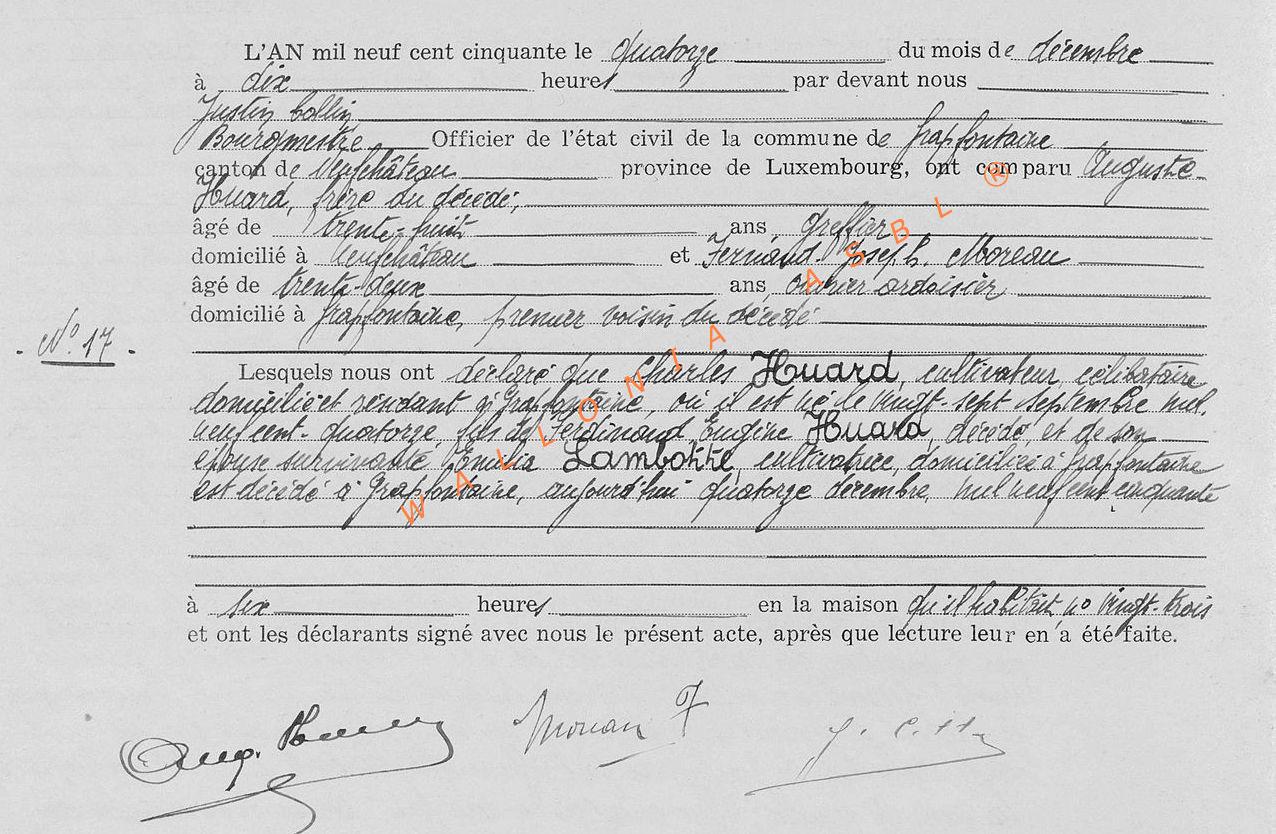 L'AN mil neuf cent cinquante le quatorze du mois de décembre
à dix heures par devant nous
Justin Collin
Bourgmestre Officier de l'état civil de la commune de Grapfontaine
canton de Neufchâteau province de Luxembourg, ont comparu Auguste
Huard, frère du décédé,
âgé de trente-huit ans, greffier
domicilié à Neufchâteau et Fernand Joseph Moreau
âgé de trente-deux ans, ouvrier ardoisier
domicilié à Grapfontaine, premier voisin du décédé
N° 17
Lesquels nous ont déclaré que Charles Huard, cultivateur, célibataire
domicilié et résidant à Grapfontaine, où il est né le vingt-sept septembre mil
neuf cent-quatorze, fils de Ferdinand Eugène Huard, décédé, et de son
épouse survivante Emilia Lambotte, cultivatrice, domiciliée à Grapfontaine
est décédé à Grapfontaine, aujourd'hui quatorze décembre, mil neuf cent cinquante
à six heures en la maison qu'il habitait n° vingt-trois
et ont les déclarants signé avec nous le présent acte, après que lecture leur en a été faite.
Aug. Huard Moreau F J. Collin
WALLONIA ASBL ®